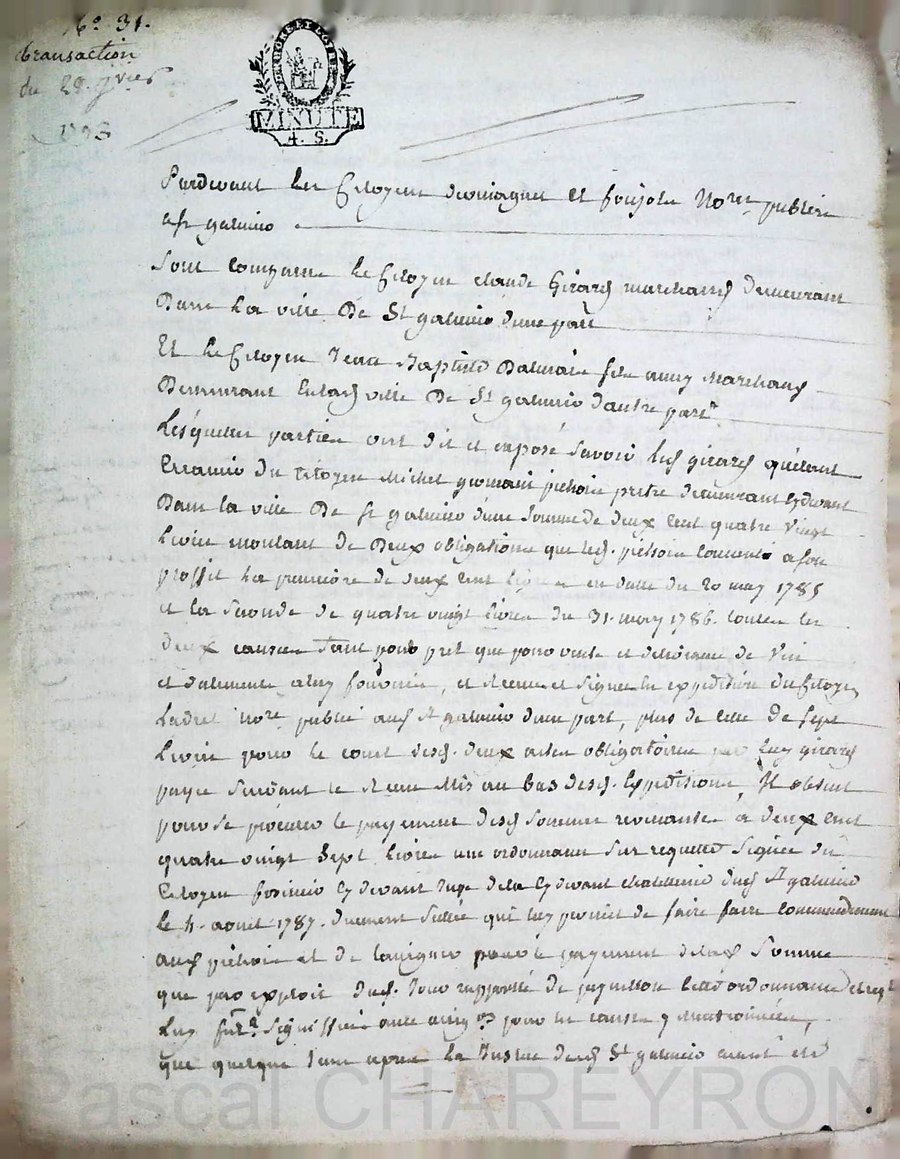 N.° 31.
transaction
du 29. 9bre
1793
RHONE ET LOIRE
MINUTE
4. S.
Pardevant les Citoyens et Nores publics
a St galmier
Sont comparus le Citoyen claude Girard marchand demeurant
Dans La ville De St galmier d'une part
Et le Citoyen Jean Baptiste fils ainé Marchand
Demeurant en lad ville De St galmier d'autre part
Lesquelles parties ont dit et exposé Savoir led girard qu'étant
Creancier du Citoyen Michel germain pichois pretre demeurant cydevant
Dans la ville De St galmier d'une Somme de deux Cent quatre vingt
Livres montant de Deux obligations que led. pichois Consentit a son
proffit La premiere de deux Cent livres en datte du 20 may 1785
et la Seconde de quatre vingt livres du 31. may 1786. toutes les
deux causées tant pour pret que pour vente et délivrance de Vin
et d'aliments a luy fournis, et Receues et Signées en expedition du Citoyen
Ladret nore public aud St galmier d'une part, plus de celle De Sept
Livres pour le cout desd. deux actes obligatoires par luy girard
payée Suivant le Receu Mis au bas desd. Expeditions, Il obtint
pour se procurer le payement desd Sommes revenantes a deux Cent
quatre vingt Sept livres une ordonnance Sur requette Signée du
Citoyen cy devant Juge dela cy devant chatellenie dud St galmier
le 4. aout 1787. duement Scellée qui luy permit de faire faire Commandement
aud pichois et de l'assigner pour le payement delad Somme
que par exploit dud. Jour rapporté de lad ordonnance et reqte
Luy furt Signiffiées avec assigon pour les causes y mentionnées,
que quelque tems après La Justice dud St galmier ayant été
Pascal CHAREYRON